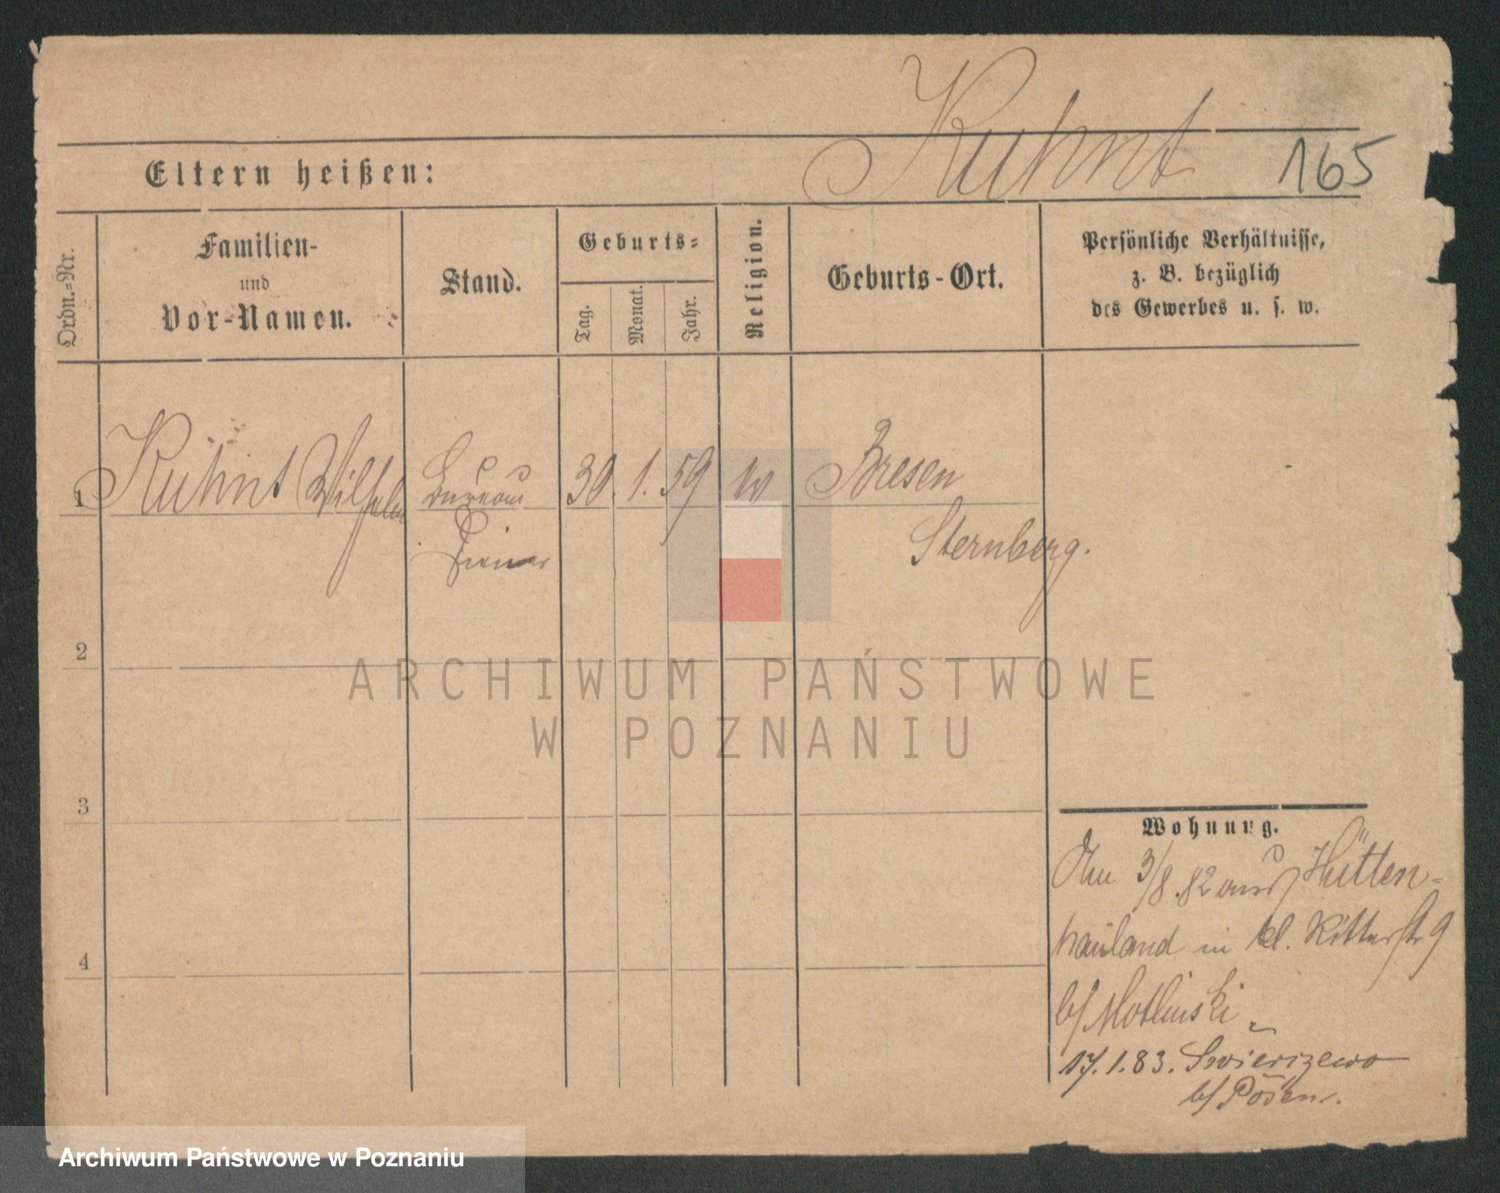 Kuhnt 165
Eltern heißen:
Ordn.-Nr.
Familien-
und
Vor-Namen.
Stand.
Geburts-
Tag.
Monat.
Jahr.
Religion.
Geburts-Ort.
Persönliche Verhältnisse,
z. B. bezüglich
des Gewerbes u. s. w.
1 Kuhnt Wilhelm Bureau 30. 1. 59 Bresen
Diener Sternberg.
2
3
4
ARCHIWUM PAŃSTWOWE
W POZNANIU
Wohnung.
3/8.82 aus Hütten-
hauland in kl. Ritterstr 9
b/
17.1.83. Swierczewo
b/ Posen.
Archiwum Państwowe w Poznaniu